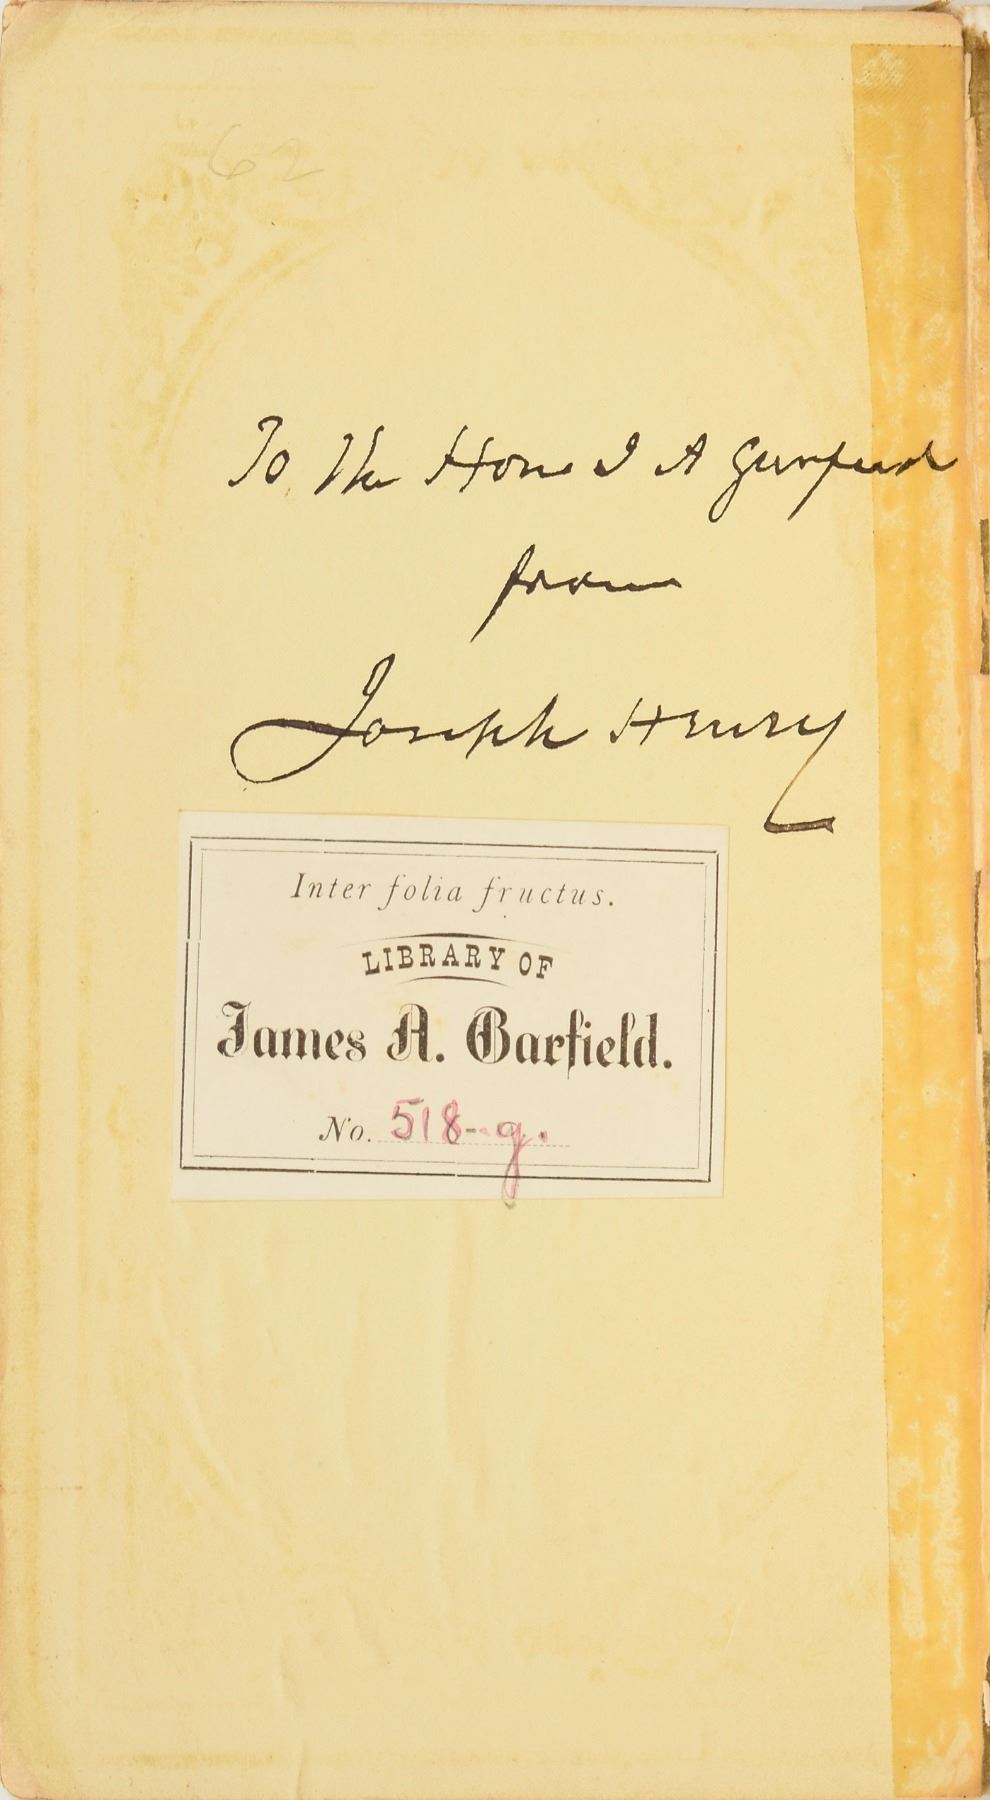 62
To the Hon J A Garfield
from
Joseph Henry
Inter folia fructus.
LIBRARY OF
James A. Garfield.
No. 518-g.